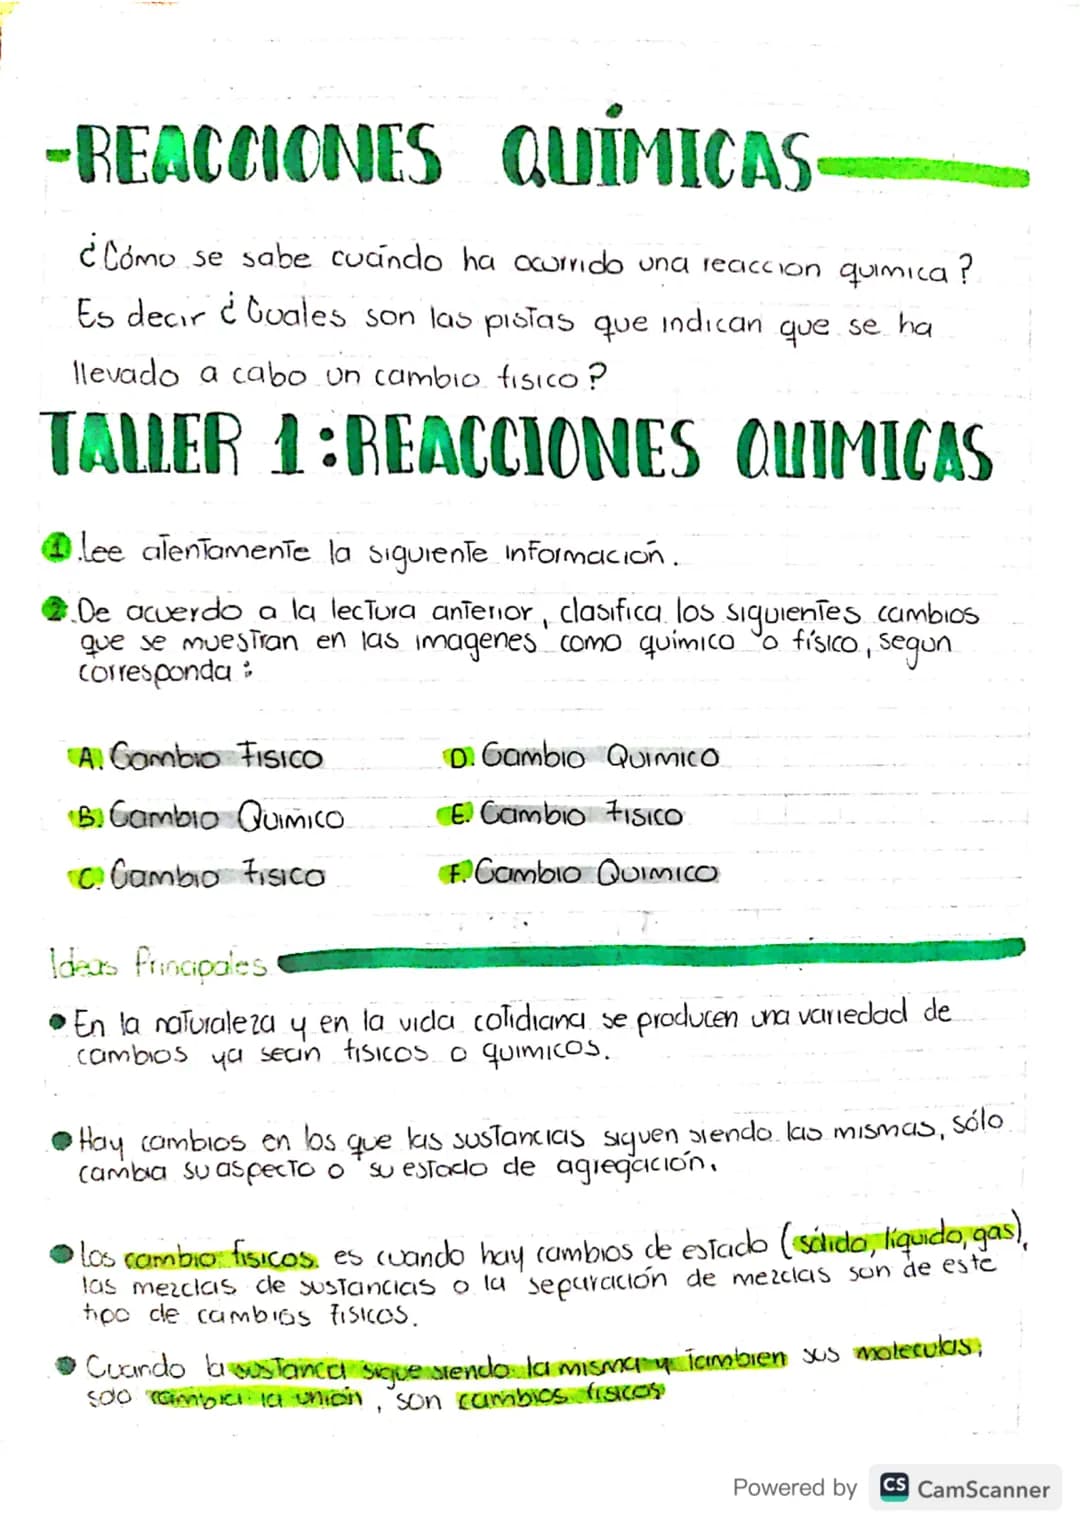 -REACCIONES QUÍMICAS
¿Cómo se sabe cuándo ha ocurrido una reaccion quimica?
Es decir ¿Cuales son las pistas que indican que se ha
llevado a cabo un cambio fisico?
TALLER 1:REACCIONES QUIMICAS
1. Lee atentamente la siguiente información.
2. De acuerdo a la lectura anterior, clasifica los siguientes cambios
que se muestran en las imagenes como químico o físico, segun
corresponda:
A. Cambio Fisico
D. Cambio Quimico
B. Cambio Quimico
E. Cambio Fisico
C. Cambio Fisico
F. Cambio Quimico
Ideas Principales
• En la naturaleza y en la vida cotidiana se producen una variedad de
cambios ya sean fisicos o quimicos.
• Hay cambios en los que las sustancias siguen siendo las mismas, sólo
cambia su aspecto o su estado de agregación.
• Los cambio fisicos es cuando hay cambios de estado (sólido, líquido, gas),
las mezclas de sustancias o la separación de mezclas son de este
tipo de cambios fisicos.
• Cuando la sustanca sigue siendo la misma y Tambien sus moleculas;
solo cambia la unión, son cambios fisicos
Powered by CS CamScanner